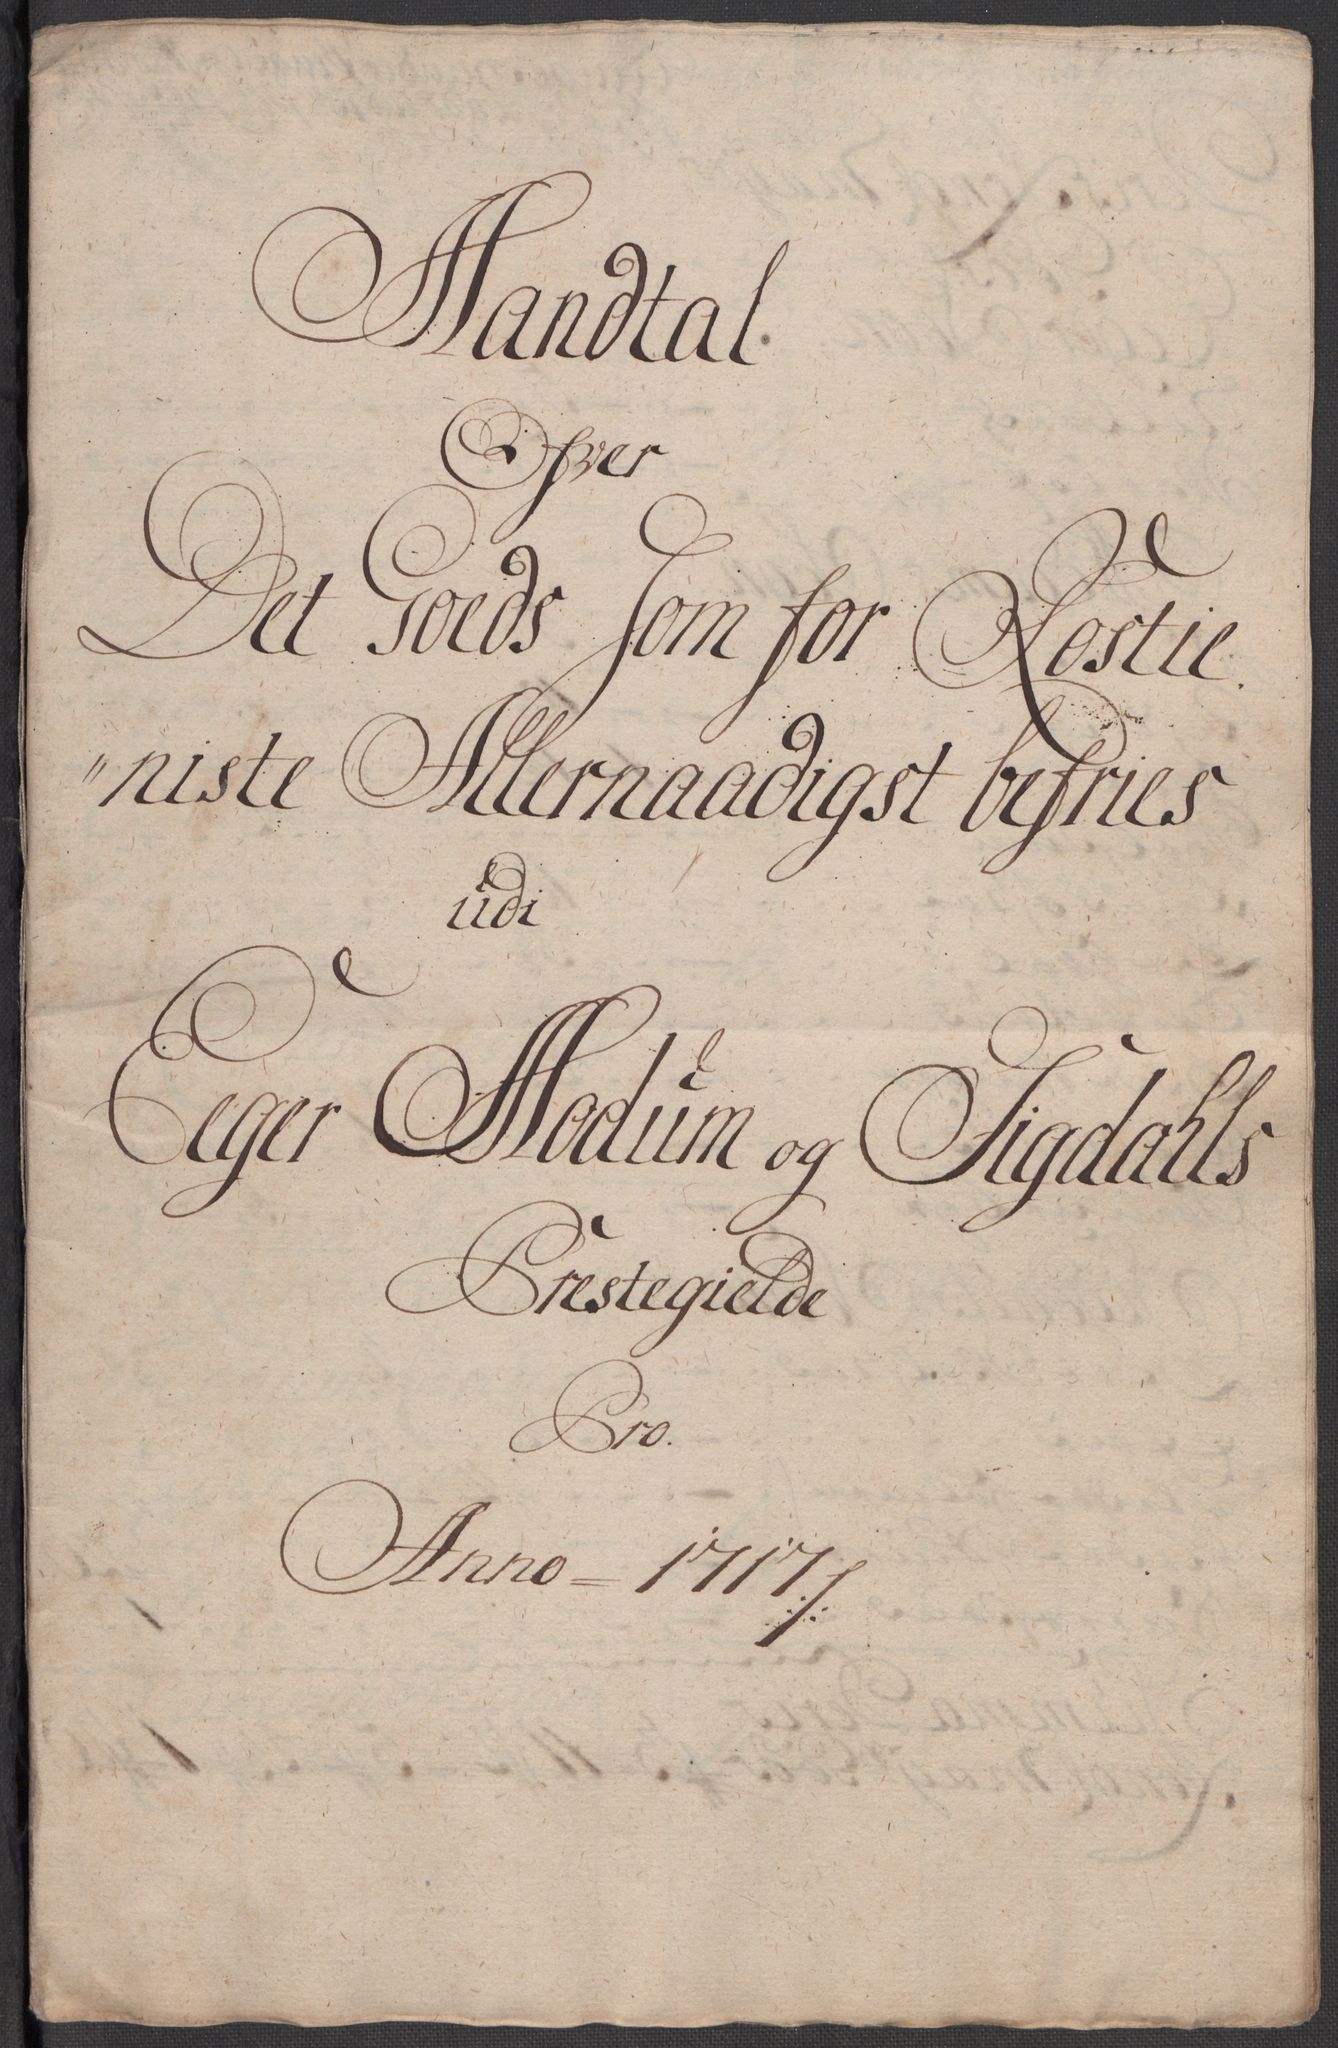 Mandtal
Ofver
Det Goeds som for Rostie
"niste Allernaadigst befries
udi
Eeger Modum og Sigdahls
Prestegielde
Pro.
Anno = 1717